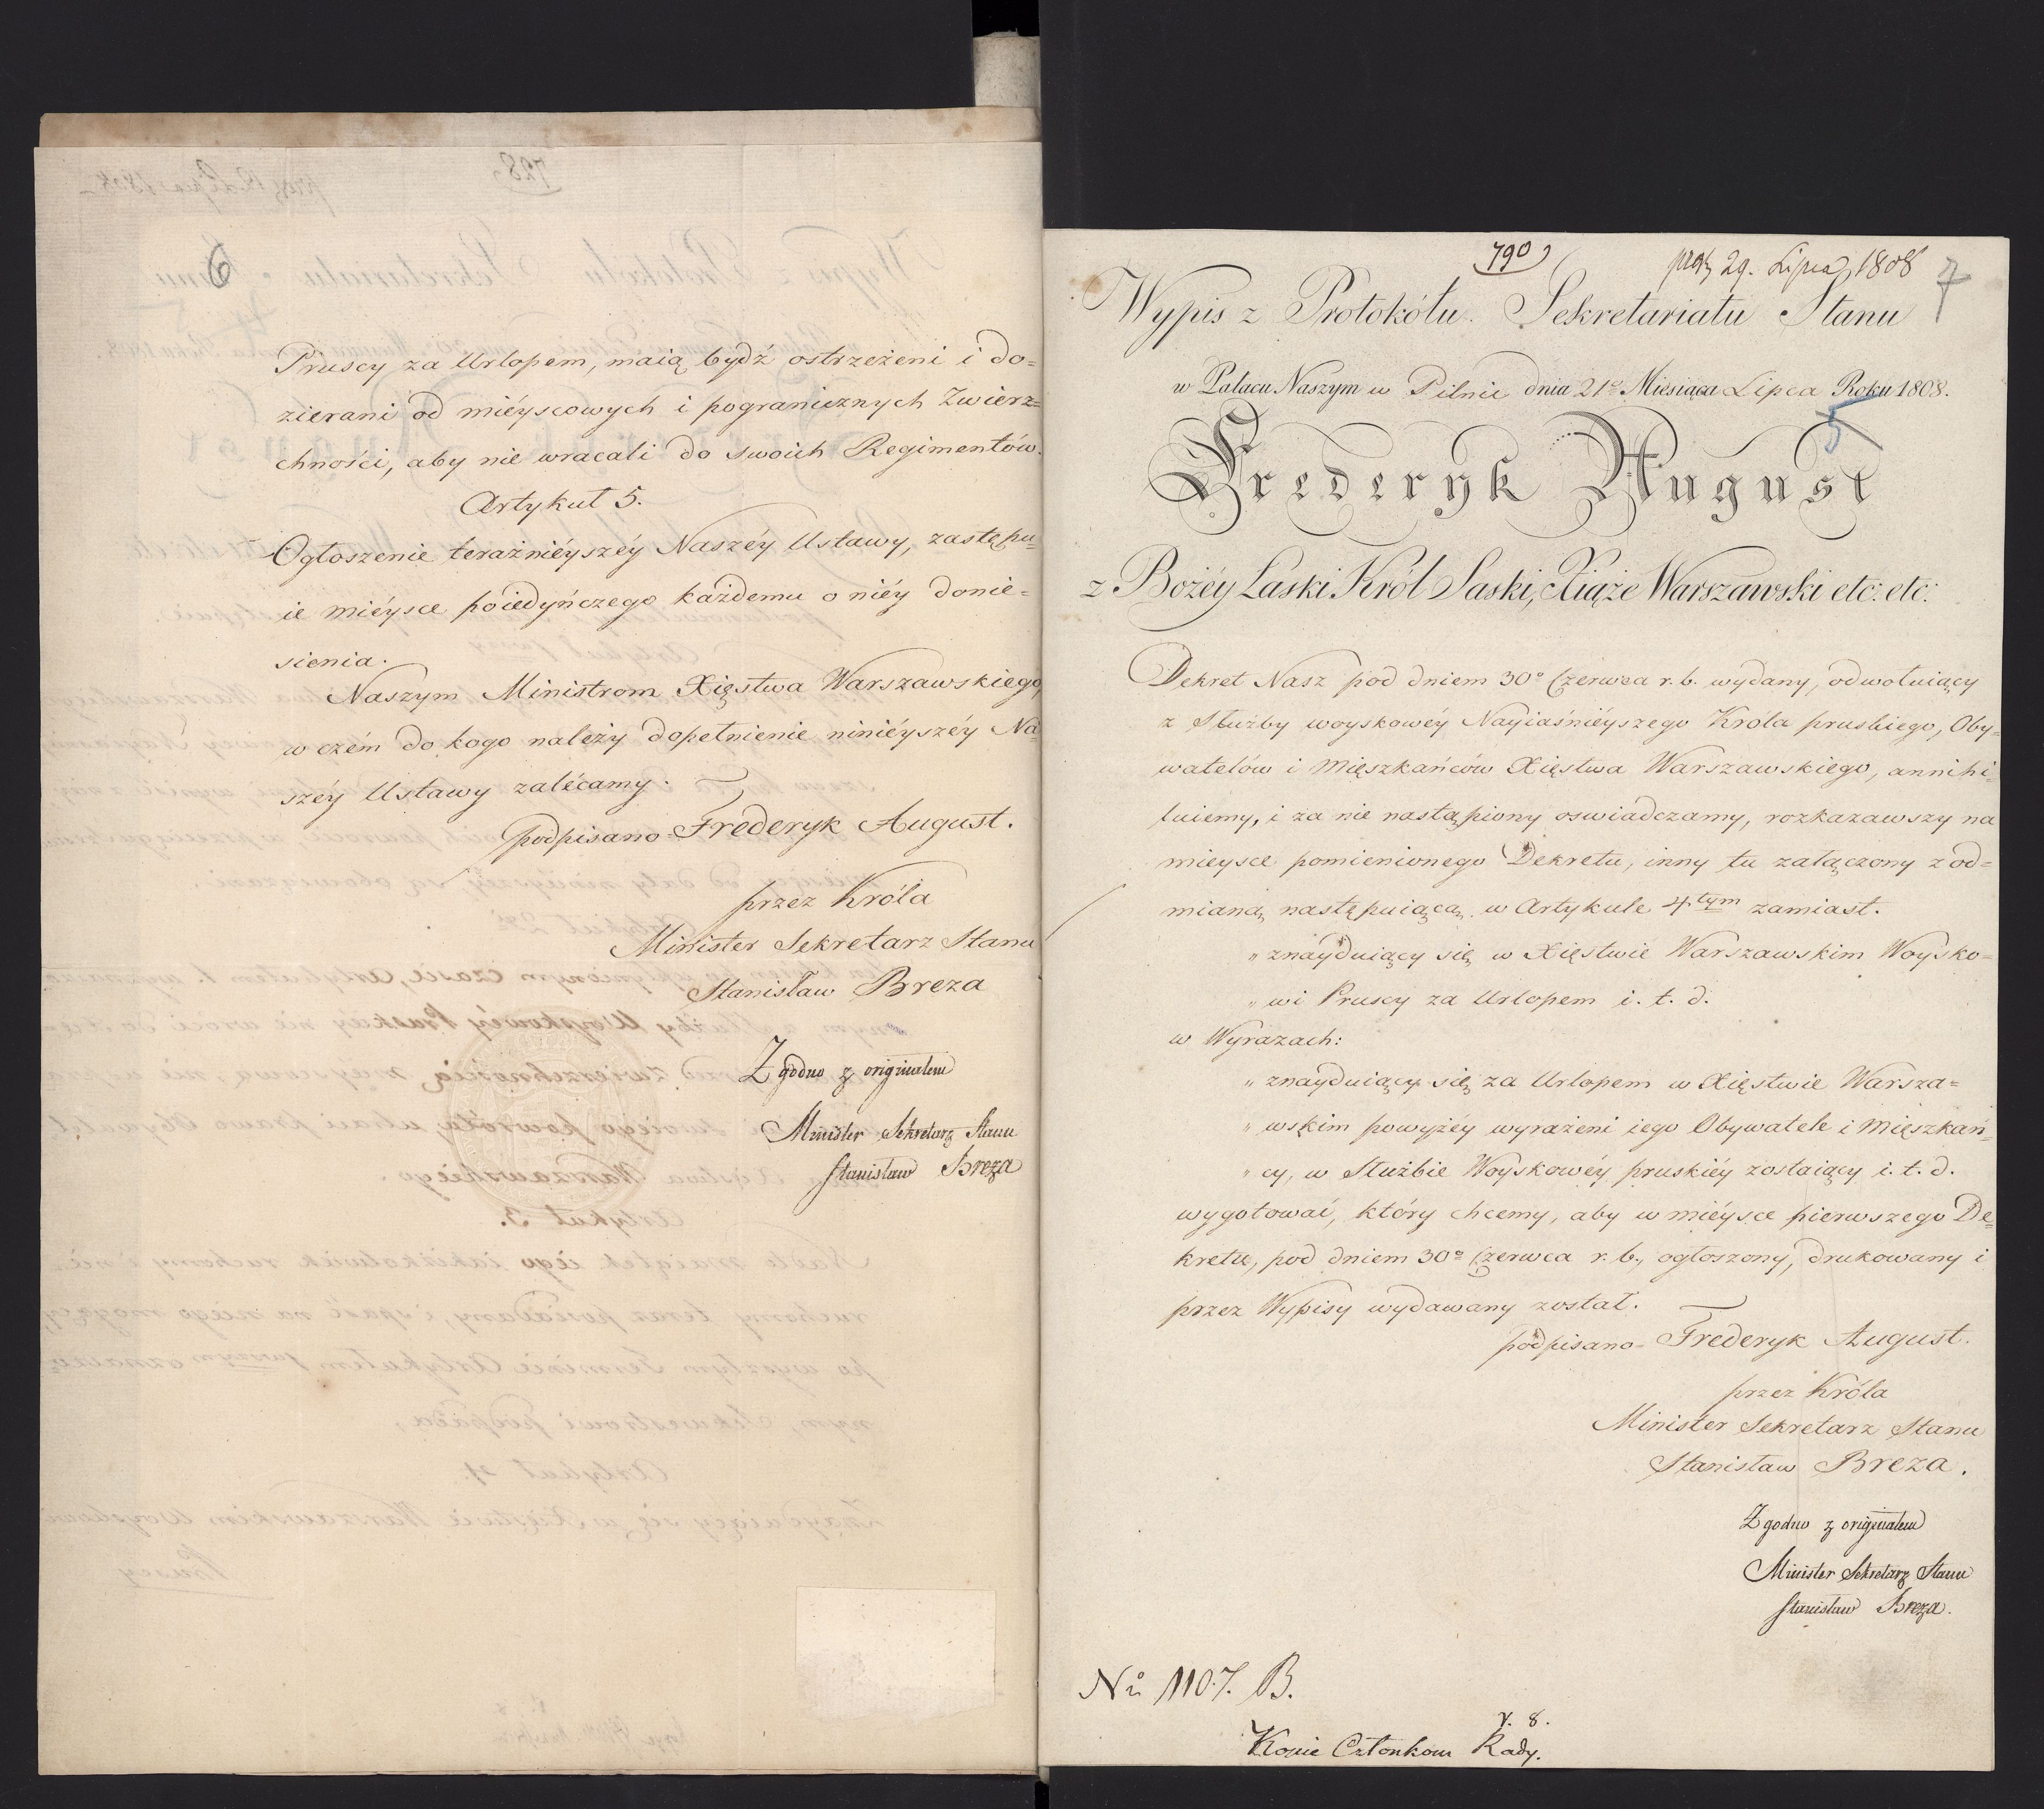 6
Pruscy za Urlopem, maią bydź ostrzeżeni i do=
zierani od miéyscowych i pogranicznych Zwierz=
chności, aby nie wracali do swoich Regimentów.
Artykuł 5.
Ogłoszenie teraźniéyszéy Naszéy Ustawy, zastępu=
ie miéysce poiedyńczego każdemu o niéy donie=
sienia.
Naszym Ministrom Xięstwa Warszawskiego,
w czém do kogo należy dopełnienie niniéyszéy Na=
széy Ustawy zalécamy.
podpisano = Frederyk August.
przez Króla
Minister Sekretarz Stanu
Stanisław Breza
Zgodno z originałem
Minister Sekretarz Stanu
Stanisław Breza
790
29. Lipca 1808
7
Wypis z Protokółu Sekretariatu Stanu
w Pałacu Naszym w Pilnic dnia 21º Miesiąca Lipca Roku 1808.
5
Frederyk August
z Bożéy Łaski Król Saski, Xiąże Warszawski etc: etc:
Dekret Nasz pod dniem 30º Czerwca r. b. wydany, odwołuiący
z Służby woyskowéy Nayiaśniéyszego Króla pruskiego, Oby=
watelów i Mięszkańców Xięstwa Warszawskiego, annihi=
luiemy, i za nie nastąpiony oswiadczamy, rozkazawszy na
mieysce pomienionego Dekretu, inny tu załączony z od=
mianą następuiącą w Artykule 4.tym zamiast.
„ znayduiący się w Xięstwie Warszawskim Woysko=
„ wi Pruscy za Urlopem i. t. d.
w Wyrazach:
„ znayduiący się za Urlopem w Xięstwie Warsza=
„ wskim powyżéy wyrażeni iego Obywatele i Mięszkań=
„ cy, w Służbie Woyskowéy pruskiéy zostaiący i. t. d.
wygotować, który chcemy, aby w miéysce pierwszego De=
kretu, pod dniem 30º Czerwca r. b., ogłoszony, drukowany i
przez Wypisy wydawany został.
podpisano = Frederyk August.
przez Króla
Minister Sekretarz Stanu
Stanisław Breza.
Zgodno z originałem
Minister Sekretarz Stanu
Stanisław Breza.
No 1107. B.
V. 8.
Kopie Członkom Rady.